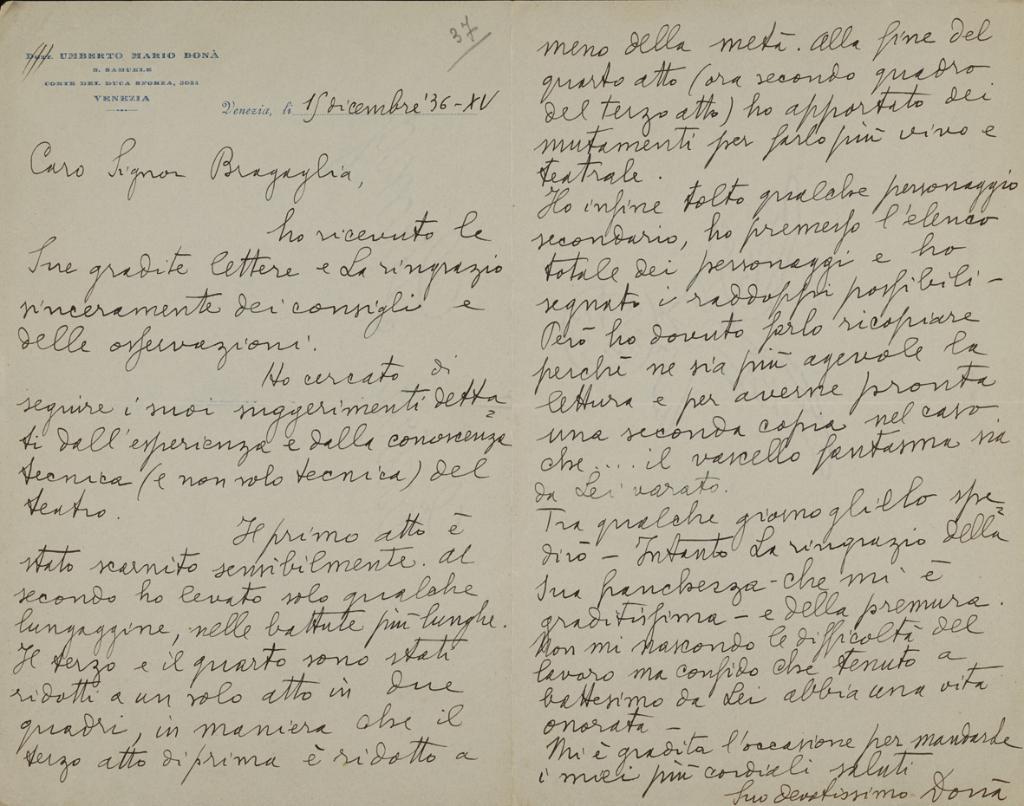 37
Dott. UMBERTO MARIO DONÀ
S. SAMUELE
CORTE DEL DUCA SFORZA, 3051
VENEZIA
Venezia, li 15 dicembre '36-XV
Caro Signor Bragaglia,
ho ricevuto le
Sue gradite lettere e La ringrazio
sinceramente dei consigli e
delle osservazioni.
Ho cercato di
seguire i suoi suggerimenti detta=
ti dall'esperienza e dalla conoscenza
tecnica (e non solo tecnica) del
teatro.
Il primo atto è
stato scarnito sensibilmente. Al
secondo ho levato solo qualche
lungaggine, nelle battute più lunghe.
Il terzo e il quarto sono stati
ridotti a un solo atto in due
quadri, in maniera che il
terzo atto di prima è ridotto a
meno della metà. Alla fine del
quarto atto (ora secondo quadro
del terzo atto) ho apportato dei
mutamenti per farlo più vivo e
teatrale.
Ho infine tolto qualche personaggio
secondario, ho premesso l'elenco
totale dei personaggi e ho
segnato i raddoppi possibili –
Però ho dovuto farlo ricopiare
perchè ne sia più agevole la
lettura e per averne pronta
una seconda copia nel caso
che... il vascello fantasma sia
da Lei varato.
Tra qualche giorno gliello spe=
dirò – Intanto La ringrazio della
Sua franchezza – che mi è
graditissima – e della premura.
Non mi nascondo le difficoltà del
lavoro ma confido che tenuto a
battesimo da Lei abbia una vita
onorata –
Mi è gradita l'occasione per mandarle
i miei più cordiali saluti
Suo devotissimo Donà